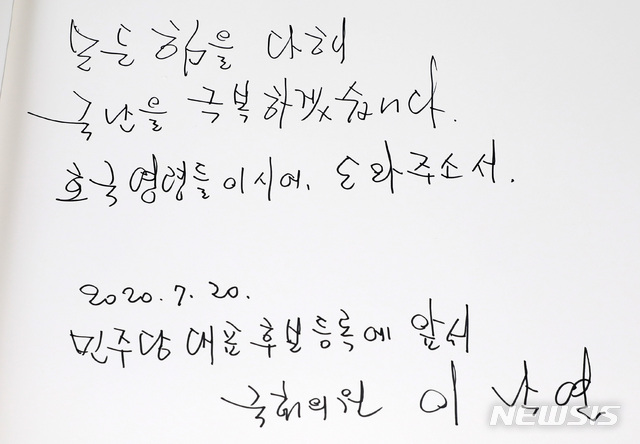 모든 힘을 다해
국난을 극복하겠습니다.
호국영령들이시여, 도와주소서.
2020.7.20.
민주당 대표 후보 등록에 앞서
국회의원 이낙연
NEWSIS